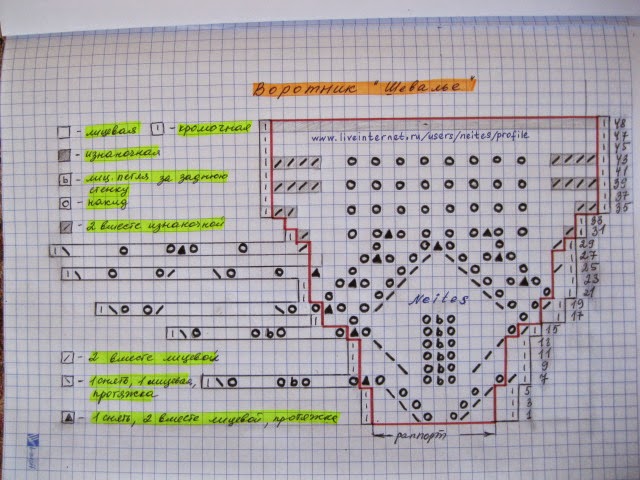 Воротник "Шевалье"
- лицевая
- кромочная
- изнаночная
- лиц. петля за заднюю стенку
- накид
- 2 вместе изнаночной
www.liveinternet.ru/users/neites/profile
48
47
45
43
41
39
37
35
33
31
29
27
25
23
21
19
17
15
13
11
9
7
5
3
1
Neites
- 2 вместе лицевой
- 1 снять, 1 лицевая,
протяжка
- 1 снять, 2 вместе лицевой, протяжка
раппорт